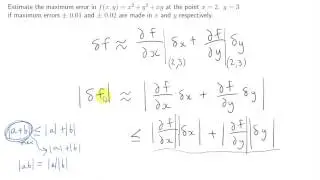 Estimate the maximum error in f(x, y) = x² + y² + xy at the point x = 2, y = 3
if maximum errors ± 0.01 and ± 0.02 are made in x and y respectively.
δf ≈ ∂f/∂x |(2,3) δx + ∂f/∂y |(2,3) δy
|δf| ≈ | ∂f/∂x · δx + ∂f/∂y · δy |
|a+b| ≤ |a| + |b|
≤ | ∂f/∂x | | δx | + | ∂f/∂y | | δy |
|a| + |b|
|ab| = |a||b|